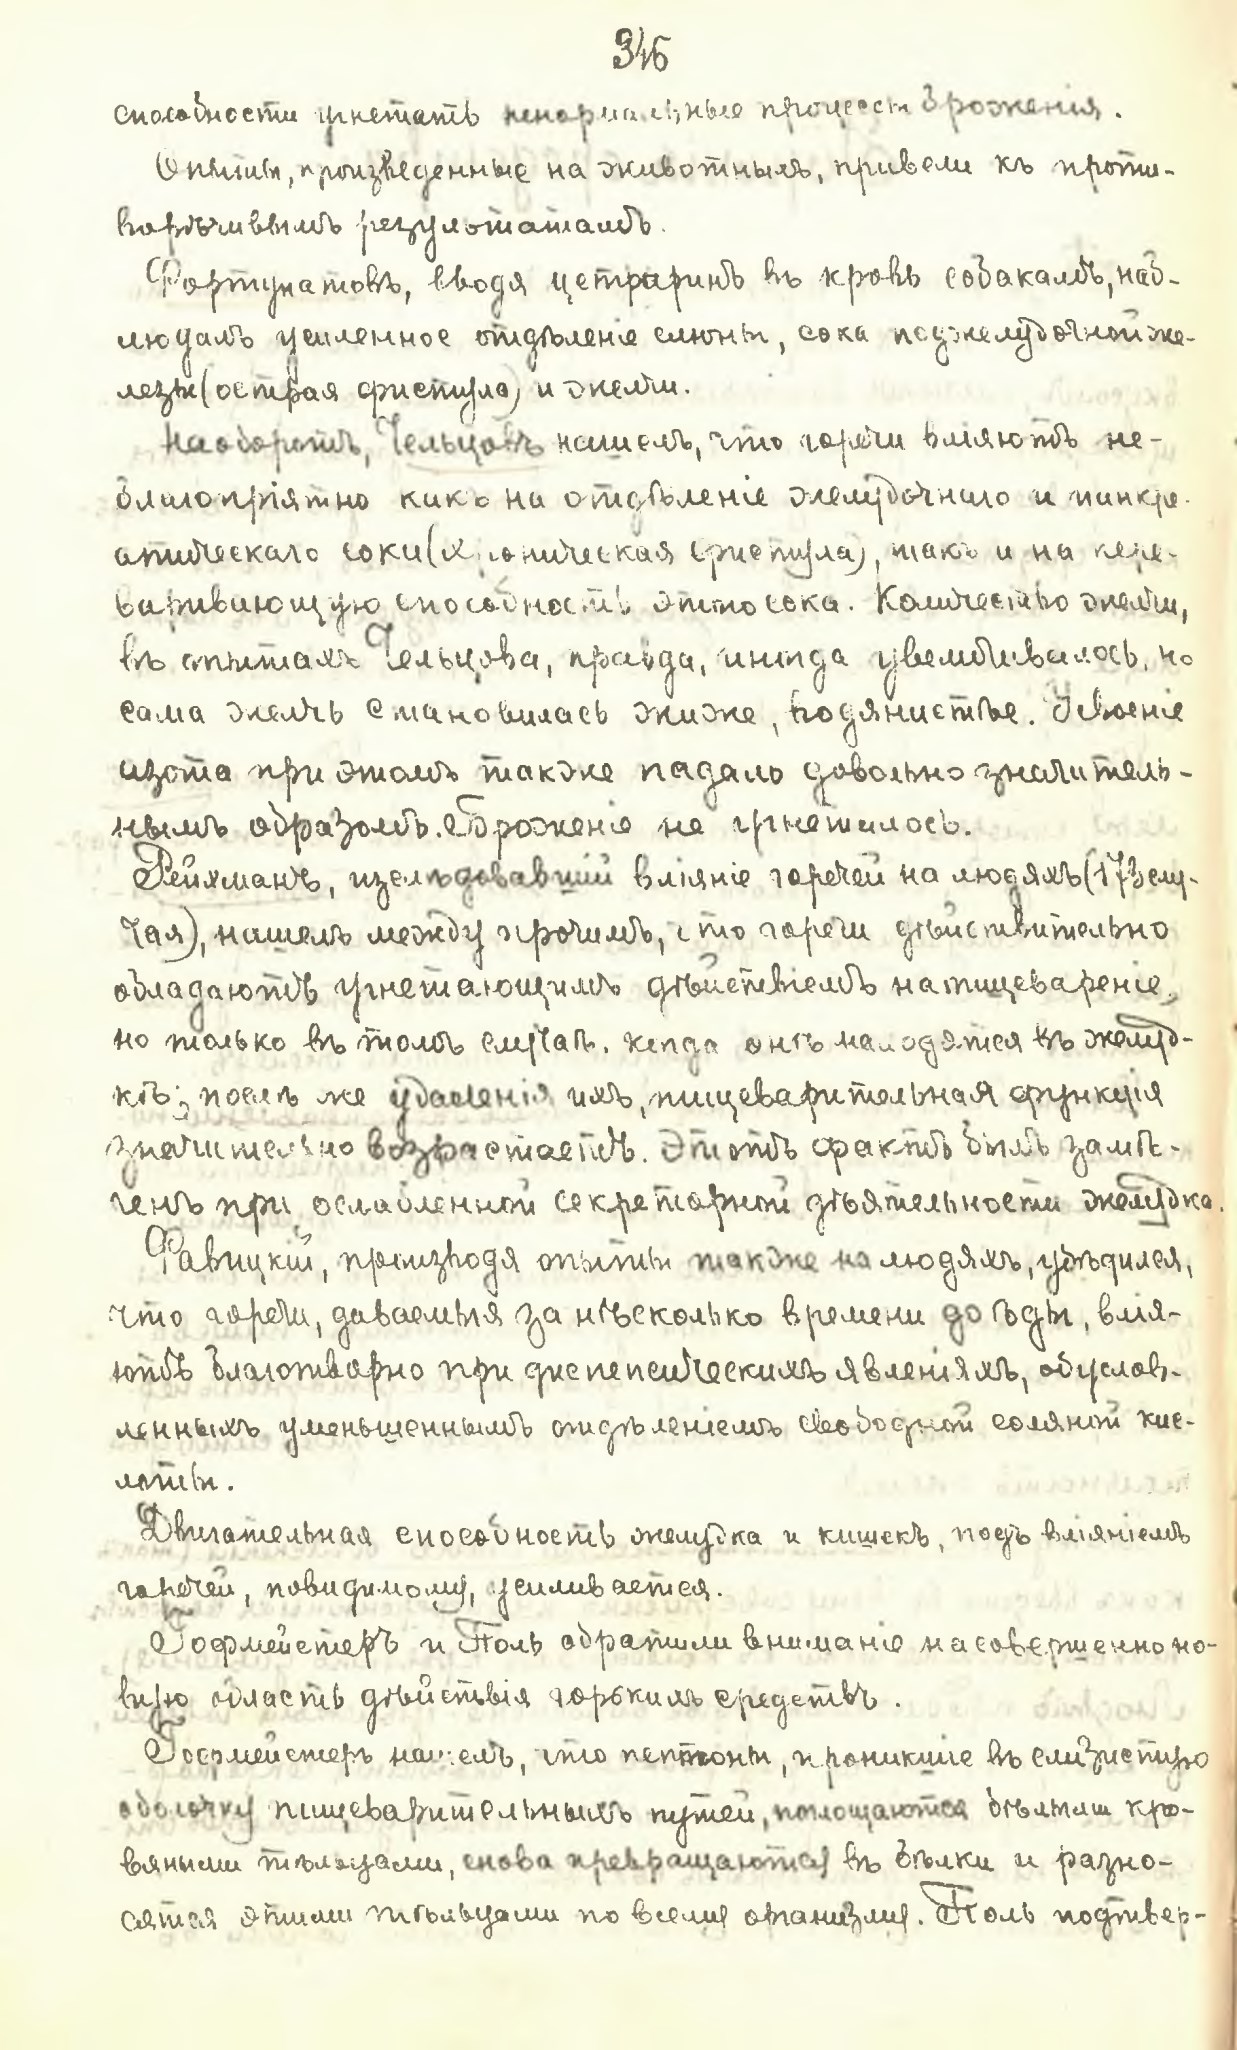 346
способности угнетать ненормальные процессы броженія.
Опыты, произведенные на животныхъ, привели къ проти-
ворѣчивымъ результатамъ.
Фортунатовъ, вводя цетраринъ въ кровь собакамъ, наб-
людалъ усиленное отдѣленіе слюны, сока поджелудочной же-
лезы (острая фистула) и желчи.
Наоборотъ, Чельцовъ нашелъ, что горечи вліяютъ не-
благопріятно какъ на отдѣленіе желудочнаго и панкре-
атическаго сока (хроническая фистула), такъ и на пере-
варивающую способность этого сока. Количество желчи,
въ опытахъ Чельцова, правда, иногда увеличивалось, но
сама желчь становилась жиже, водянистѣе. Усвоеніе
азота при этомъ также падало довольно значитель-
нымъ образомъ. Броженіе не угнеталось.
Рейхманъ, изслѣдовавшій вліяніе горечей на людяхъ (173 слу-
чая), нашелъ между прочимъ, что горечи дѣйствительно
обладаютъ угнетающимъ дѣйствіемъ на пищевареніе,
но только въ томъ случаѣ, когда онѣ находятся въ желуд-
кѣ; послѣ же удаленія ихъ, пищеварительная функція
значительно возрастаетъ. Этотъ фактъ былъ замѣ-
ченъ при ослабленной секреторной дѣятельности желудка.
Фавицкій, производя опыты также на людяхъ, убѣдился,
что горечи, даваемыя за нѣсколько времени до ѣды, влія-
ютъ благотворно при диспепсическихъ явленіяхъ, обуслов-
ленныхъ уменьшеннымъ отдѣленіемъ свободной соляной кис-
лоты.
Двигательная способность желудка и кишекъ, подъ вліяніемъ
горечей, повидимому, усиливается.
Гофмейстеръ и Поль обратили вниманіе на совершенно но-
вую область дѣйствія горькихъ средствъ.
Гофмейстеръ нашелъ, что пептоны, проникшіе въ слизистую
оболочку пищеварительныхъ путей, поглощаются бѣлыми кро-
вяными тѣльцами, снова превращаются въ бѣлки и разно-
сятся этими тѣльцами по всему организму. Поль подтвер-